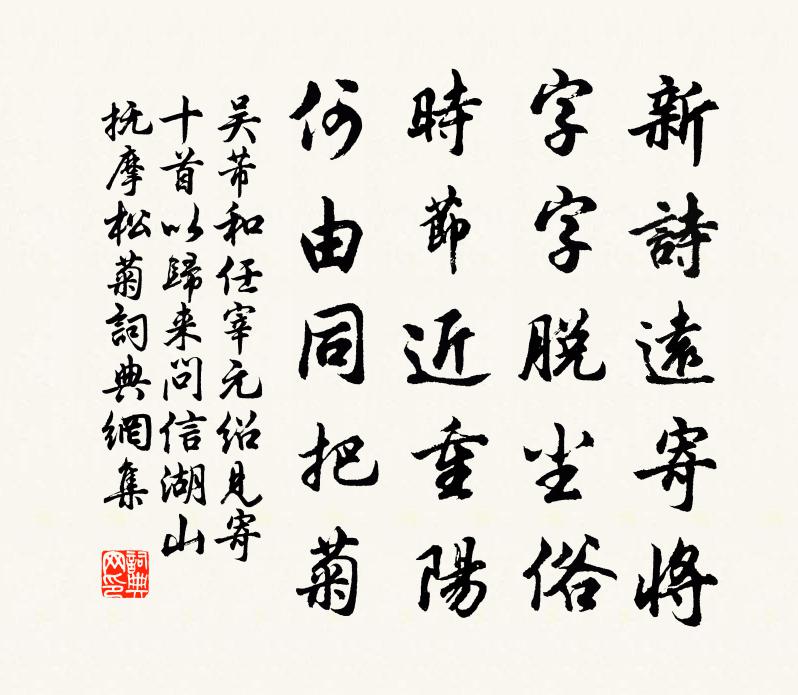 新詩遠寄將
字字脫尘俗
時節近重陽
何由同把菊
吴芾和任宰元绍見寄
十首以歸来问信湖山
抚摩松菊詞典網集
詞典
网印